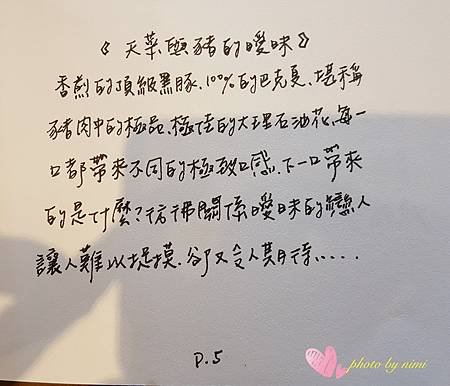 《天菜與豬的曖昧》
香煎的頂級黑豚、100%的巴克夏、堪稱
豬肉中的極品、極佳的大理石油花、每一
口都帶來不同的極致口感、下一口帶來
的是什麼？彷彿關係曖昧的戀人
讓人難以捉摸、卻又令人期待.....
P.5
photo by nimi